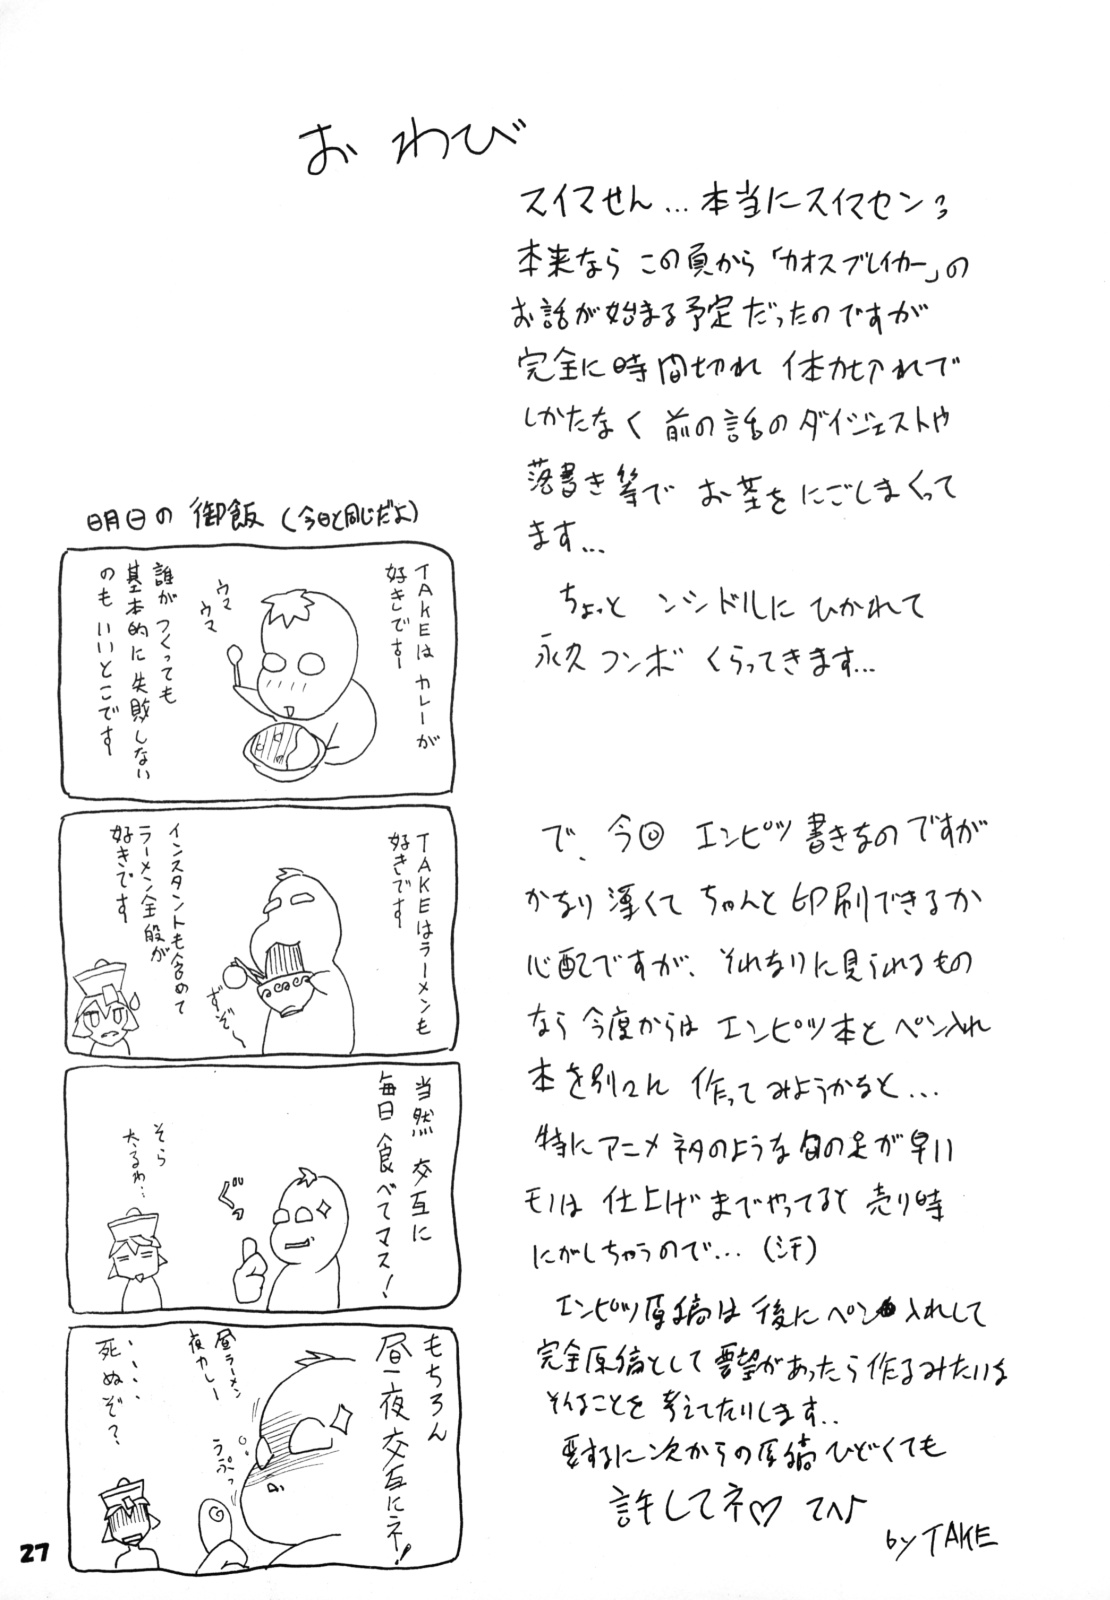 おわび
スイマせん…本当にスイマセン
本来なら この頁から「カオスブレイカー」の
お話が始まる予定だったのですが
完全に時間切れ 体力切れで
しかたなく 前の話のダイジェストや
落書き等で お茶をにごしまくって
ます…
ちょっと ンシドルに ひかれて
永久コンボ くらってきます…
で、今回 エンピツ書きなのですが
かなり薄くて ちゃんと印刷できるか
心配ですが、それなりに見られるもの
なら 今度からは エンピツ本と ペン入れ
本を別々に 作ってみようかなと…
特にアニメネタのような 旬の足が早い
モノは 仕上げまでやってると 売り時
にがしちゃうので…(汗)
エンピツ原稿は 後にペン入れして
完全原稿として 要望があったら作るみたいな
そんなことを 考えてたりします..
要するに次からの原稿ひどくても
許してネ♡ てへ♪
by TAKE
明日の 御飯 (今日と同じだよ)
TAKEは カレーが
好きです
ウマ
ウマ
誰が つくっても
基本的に失敗しない
のも いいとこです
TAKEはラーメンも
好きです
ずぞ〜
インスタントも含めて
ラーメン全般が
好きです
当然 交互に
毎日 食べてマス!
ぐっ
そら
太るわ…
もちろん
昼夜交互にネ!
昼ラーメン
夜カレー
うぷっ
・・・・
死ぬぞ?
27